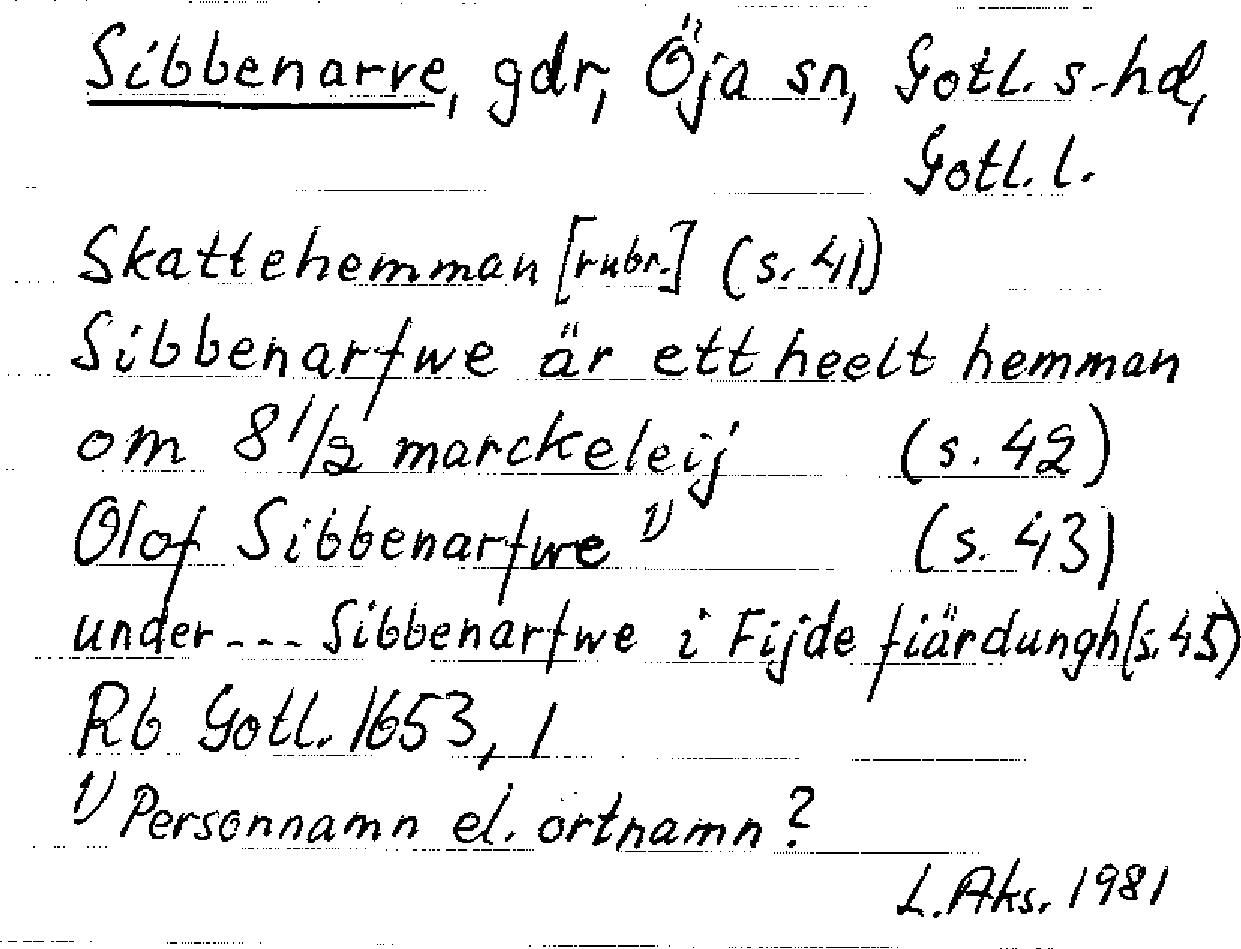 Sibbenarve, gdr, Öja sn, Gotl. s-hd,
Gotl. l.
Skattehemman [rubr.] (s. 41)
Sibbenarfwe är ett heelt hemman
om 8 1/2 marckeleij (s. 42)
Olof Sibbenarfwe 1) (s. 43)
under --- Sibbenarfwe i Fijde fiärdungh (s. 45)
Rb Gotl. 1653, 1
1) Personnamn el. ortnamn?
L. Aks. 1981